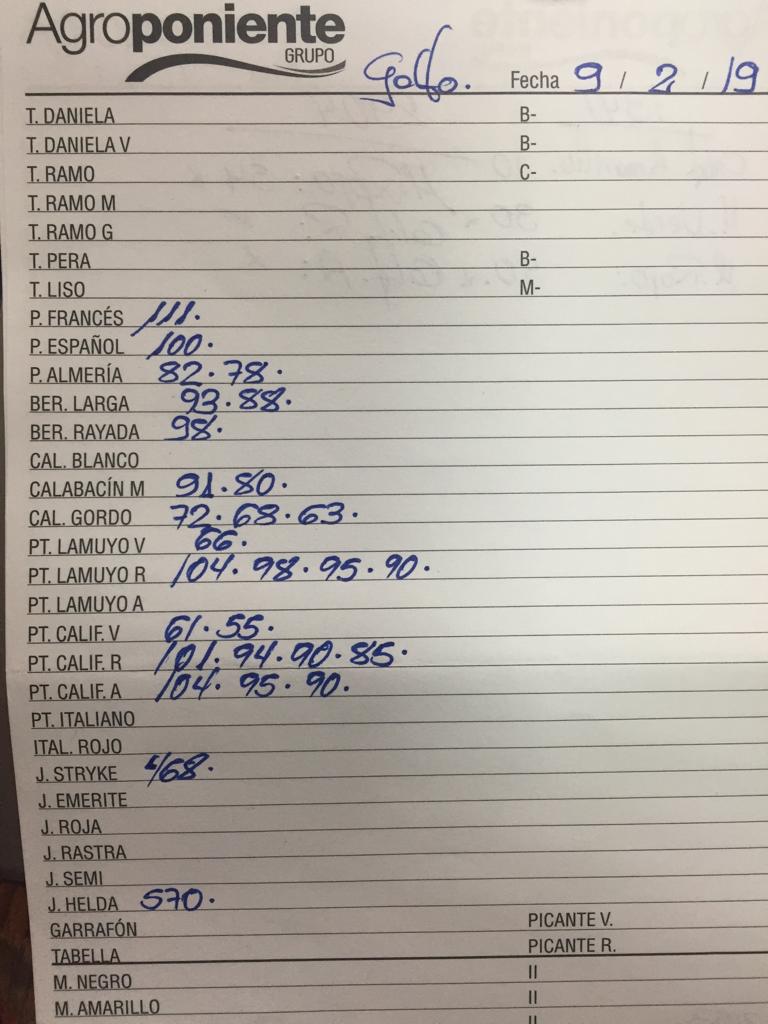 Agroponiente
GRUPO
Golfo. Fecha 9 / 2 / 19
T. DANIELA B-
T. DANIELA V B-
T. RAMO C-
T. RAMO M
T. RAMO G
T. PERA B-
T. LISO M-
P. FRANCÉS 111.
P. ESPAÑOL 100.
P. ALMERÍA 82. 78.
BER. LARGA 93. 88.
BER. RAYADA 98.
CAL. BLANCO
CALABACÍN M 91. 80.
CAL. GORDO 72. 68. 63.
PT. LAMUYO V 66.
PT. LAMUYO R 104. 98. 95. 90.
PT. LAMUYO A
PT. CALIF. V 61. 55.
PT. CALIF. R 101. 94. 90. 85.
PT. CALIF. A 104. 95. 90.
PT. ITALIANO
ITAL. ROJO
J. STRYKE
J. EMERITE
J. ROJA
J. RASTRA
J. SEMI
J. HELDA 570.
GARRAFÓN PICANTE V.
TABELLA PICANTE R.
M. NEGRO II
M. AMARILLO II
II